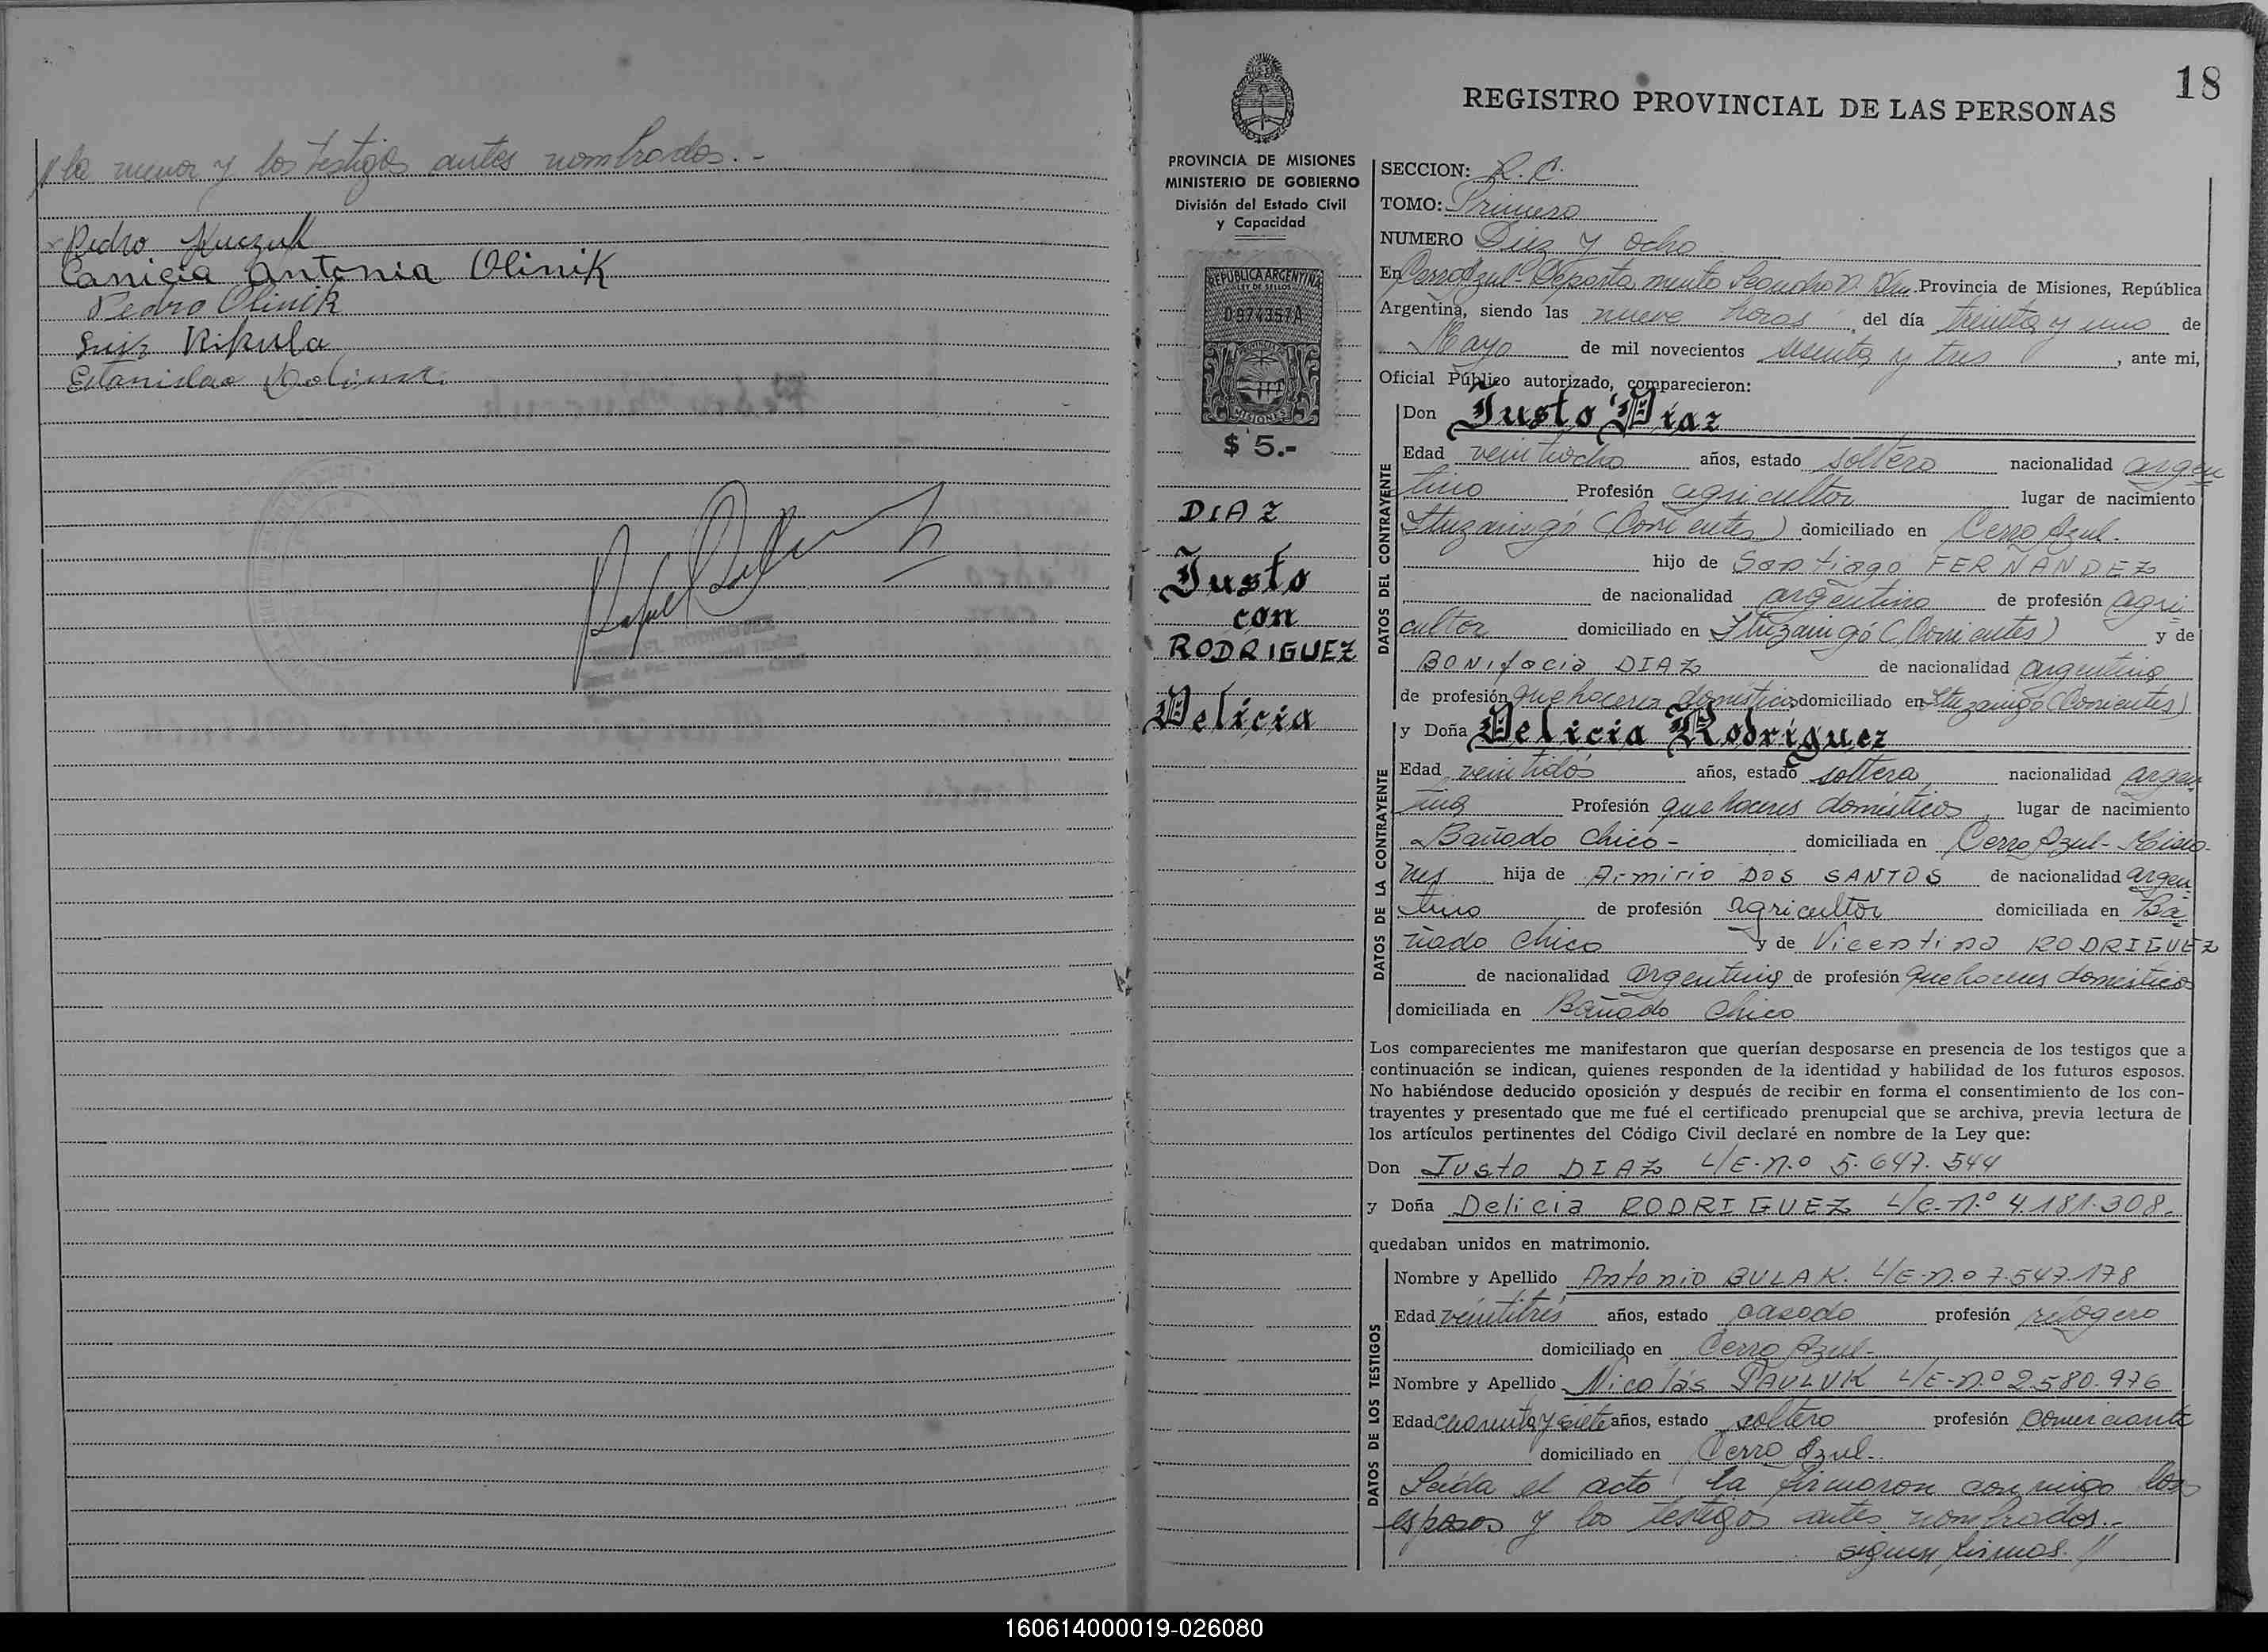 // la menor y los testigos antes nombrados.-
Pedro Kuczuk
Canicia Antonia Olinik
Pedro Olinik
Luis Kikula
Estanislao
18
REGISTRO PROVINCIAL DE LAS PERSONAS
PROVINCIA DE MISIONES
MINISTERIO DE GOBIERNO
División del Estado Civil
y Capacidad
REPUBLICA ARGENTINA
LEY DE SELLOS
0974357A
PROVINCIA DE
MISIONES
$ 5.-
DIAZ
Justo
con
RODRIGUEZ
Delicia
SECCION: R. C.
TOMO: Primero
NUMERO Diez y ocho
En Cerro Azul - Departamento Leandro N. Alem. Provincia de Misiones, República
Argentina, siendo las nueve horas, del día treinta y uno de
Mayo de mil novecientos sesenta y tres, ante mi,
Oficial Público autorizado, comparecieron:
DATOS DEL CONTRAYENTE
Don Justo Díaz
Edad veintiocho años, estado soltero nacionalidad argen
tino Profesión agricultor lugar de nacimiento
Ituzaingó (Corrientes) domiciliado en Cerro Azul.
hijo de Santiago FERNANDEZ
de nacionalidad argentino de profesión agri
cultor domiciliado en Ituzaingó (Corrientes) y de
BONifacia DIAZ de nacionalidad argentina
de profesión quehaceres domésticos domiciliado en Ituzaingó (Corrientes)
DATOS DE LA CONTRAYENTE
y Doña Delicia Rodríguez
Edad veintidós años, estado soltera nacionalidad argen
tina Profesión quehaceres domésticos, lugar de nacimiento
Bañado Chico - domiciliada en Cerro Azul - Misio-
nes hija de Armirio DOS SANTOS de nacionalidad argen
tino de profesión agricultor domiciliada en Ba
ñado Chico y de Vicentina RODRIGUEZ
de nacionalidad argentina de profesión quehaceres domésticos
domiciliada en Bañado Chico
Los comparecientes me manifestaron que querían desposarse en presencia de los testigos que a
continuación se indican, quienes responden de la identidad y habilidad de los futuros esposos.
No habiéndose deducido oposición y después de recibir en forma el consentimiento de los con-
trayentes y presentado que me fué el certificado prenupcial que se archiva, previa lectura de
los artículos pertinentes del Código Civil declaré en nombre de la Ley que:
Don Justo DIAZ L/E-N.º 5.647.544
y Doña Delicia RODRIGUEZ L/C-N.º 4.181.308.
quedaban unidos en matrimonio.
DATOS DE LOS TESTIGOS
Nombre y Apellido Antonio BULAK. L/E-N.º 7.547.178
Edad veintitrés años, estado casado profesión
domiciliado en Cerro Azul-
Nombre y Apellido Nicolás PAULUK L/E-N.º 2.580.976
Edad cuarenta y siete años, estado soltero profesión comerciante
domiciliado en Cerro Azul.
Leída el acto la firmaron conmigo los
esposos y los testigos antes nombrados.-
siguen firmas. //
160614000019-026080